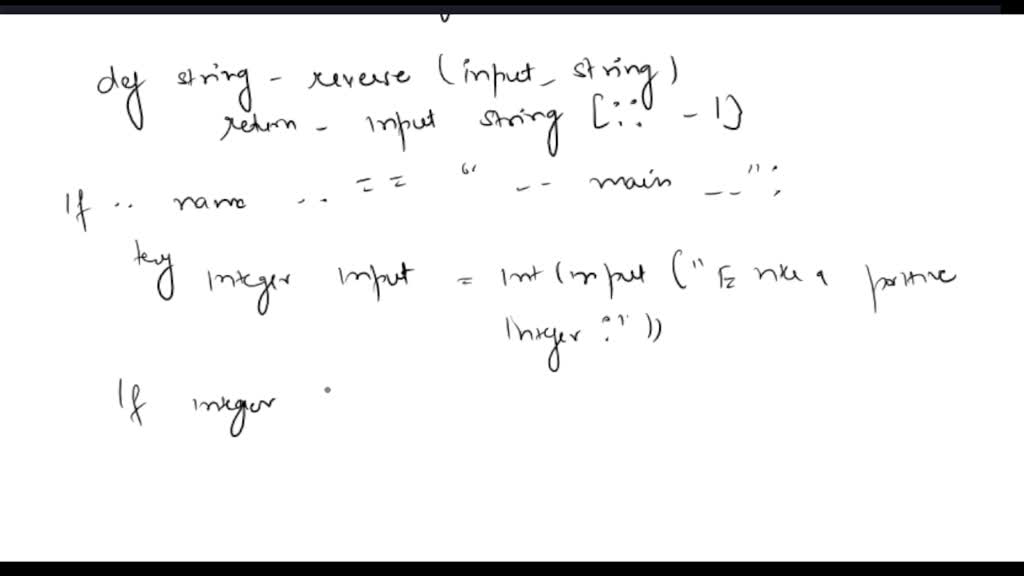 def string - reverse (input_string)
return - input string [:: -1]
If .. name .. == "-- main --":
try integer input = Int (input ("Enter a positive
Integer :"))
If integer